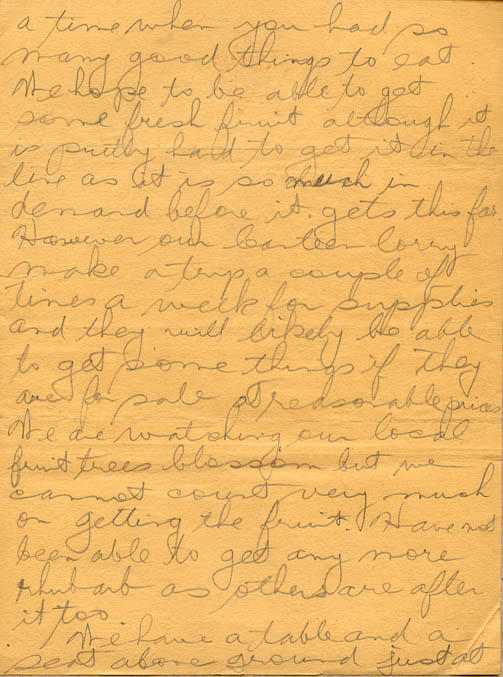 a time when you had so
many good things to eat
We hope to be able to get
some fresh fruit although it
is pretty hard to get it in the
line as it is so much in
demand before it gets this far.
However our canteen lorry
make a trip a couple of
times a week for supplies
and they will likely be able
to get some things if they
are for sale at reasonable prices
We are watching our local
fruit trees blossom but we
cannot count very much
on getting the fruit. Have not
been able to get any more
rhubarb as others are after
it too
We have a table and a
seat above ground just at